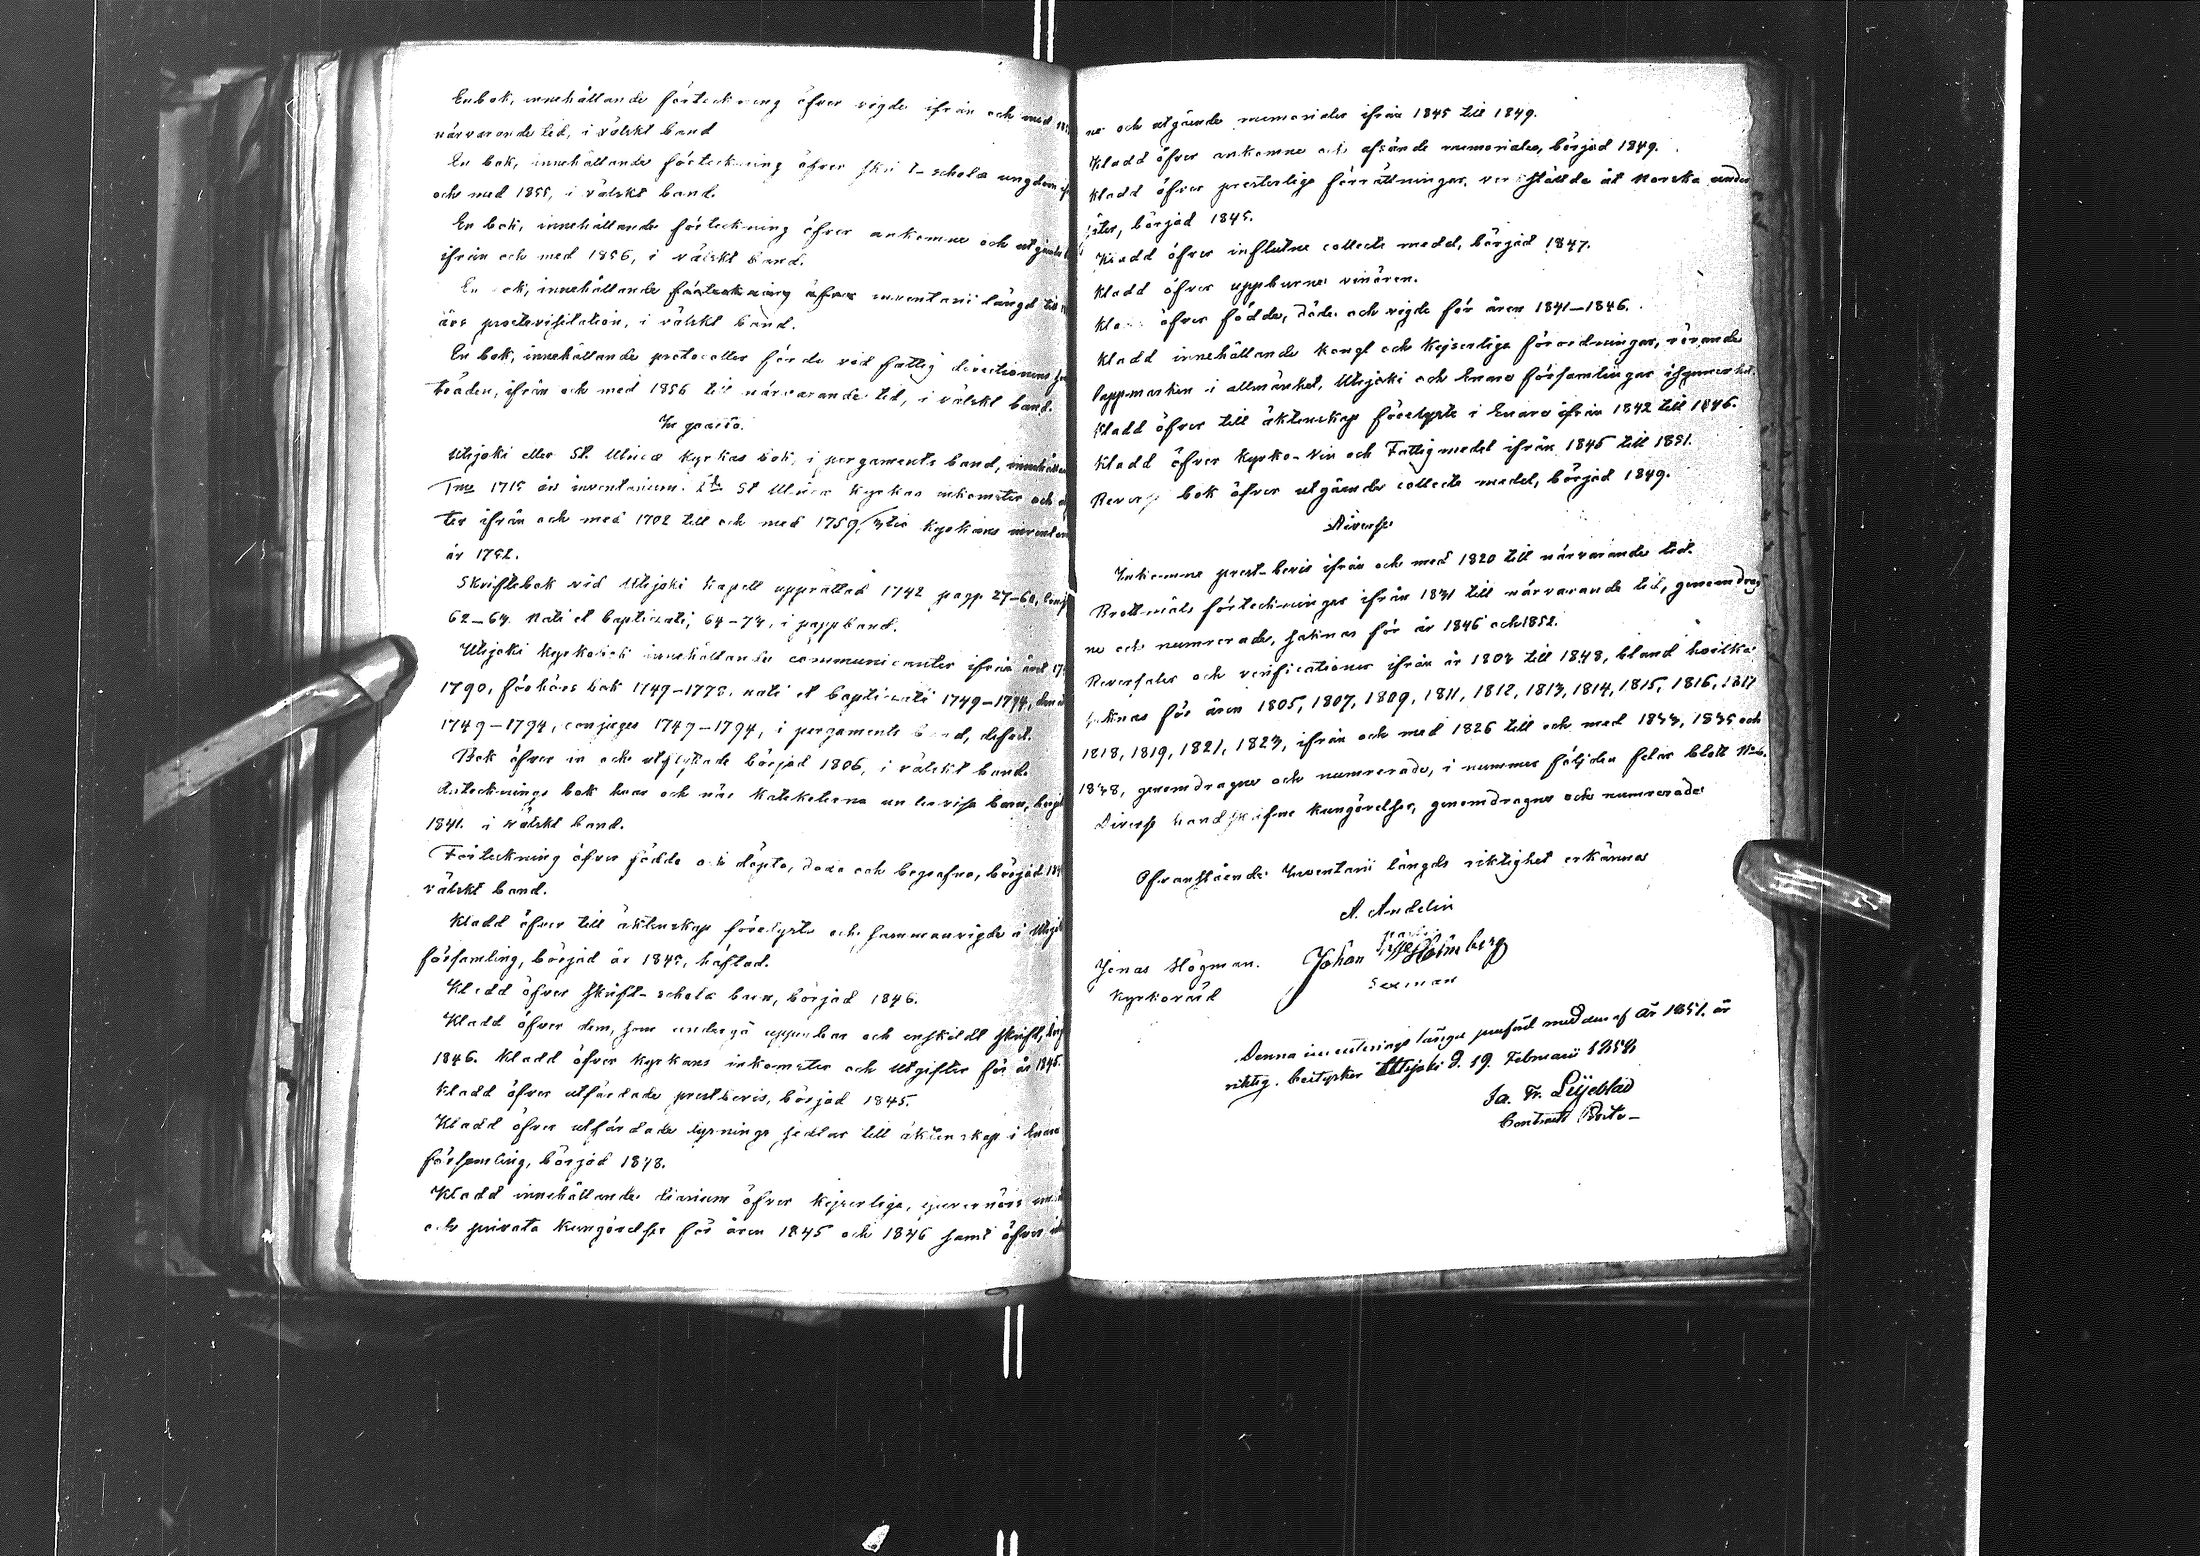 En bok, innehållande förteckning öfver vigde ifrån och med
närvarande tid, i välskt band
En bok, innehållande förteckning öfver skola ungdom
och med 1855, i välskt band.
En bok, innehållande förteckning öfver ankomne och utgående
ifrån och med 1856, i välskt band.
innehållande förteckning öfver inventarii längd till
års prostevisitation, i välskt band.
En bok, innehållande protocoller förde vid fattig directionens
träden, ifrån och med 1856 till närvarande tid, i välskt band.
In quarto.
Utsjoki eller St. Ulricæ kyrkas bok, i pergaments band,
1mo 1715 års inventarium. 2do St Ulricæ kyrkas inkomster och
ter ifrån och med 1702 till och med 1759, 3tio kyrkans
år 1752.
Skriftebok vid Utsjoki Kapell upprättad 1742 pagg 27–60,
62–63. Nati et baptizati, 64–73, i pappband.
Utsjoki kyrkobok innehållande communicanter ifrån
1790, förhörs bok 1749–1773. nati et baptizati 1749–1794,
1749–1794, conjuges 1749–1794, i pergaments band, defect.
Bok öfver in och utflyttade börjad 1806, i välskt band.
Antecknings bok huru och när Kateketerna undervisa barn,
1841. i välskt band.
Förteckning öfver födde och döpte, döda och begrafna, börjad
välskt band.
Kladd öfver till äktenskap förelyste och sammanvigde i
församling, börjad år 1845, häftad.
Kladd öfver skrift-schola barn, börjad 1846.
Kladd öfver dem, som undergå uppenbar och enskildt skrift,
1846. Kladd öfver kyrkans inkomster och utgifter för år 1845.
Kladd öfver utfärdade prestbevis, börjad 1845.
Kladd öfver utfärdade lysnings sedlar till äktenskap i Enare
församling, börjad 1838.
Kladd innehållande diarium öfver kejserliga, guvernörs
och privata kungörelser för åren 1845 och 1846 samt öfver
ne och utgående memorialer ifrån 1845 till 1849.
Kladd öfver ankomne och afsände memorialer, börjad 1849.
Kladd öfver presterliga förrättningar, verkställde åt Norska
börjad 1845.
Kladd öfver influtne collecte medel, börjad 1847.
Kladd öfver uppburne vinören.
öfver födde, döde och vigde för åren 1841–1846.
Kladd innehållande Kongl och Kejserliga förordningar, rörande
lappmarken i allmänhet, Utsjoki och Enare församlingar
Kladd öfver till äktenskap förelyste i Enare ifrån 1842 till 1846.
Kladd öfver Kyrko-Vin och Fattigmedel ifrån 1845 till 1851.
Revers bok öfver utgående collecte medel, börjad 1849.
Diverse
Inkomne prest-bevis ifrån och med 1820 till närvarande tid.
Brottmåls förteckningar ifrån 1831 till närvarande tid, genomdrag
ne och numrerade, saknas för år 1846 och 1852.
Reversaler och verificationer ifrån år 1803 till 1848, bland hvilka
saknas för åren 1805, 1807, 1809, 1811, 1812, 1813, 1814, 1815, 1816, 1817
1818, 1819, 1821, 1823, ifrån och med 1826 till och med 1833, 1835 och
1838, genomdragne och numrerade, i nummer följden felar blott
Diverse handskrifne kungörelser, genomdragne och numrerade
Ofvanstående Inventarii längds riktighet erkännes
A. Andelin
pastor
Jonas Högman. Johan Holmberg
Kyrkovärd Sexman
Denna inventerings längd jemförd med den af år 1851. är
riktig, betygar Utsjoki d. 19. Februarii
Ja. Fr. Liljeblad
Contracts Prost